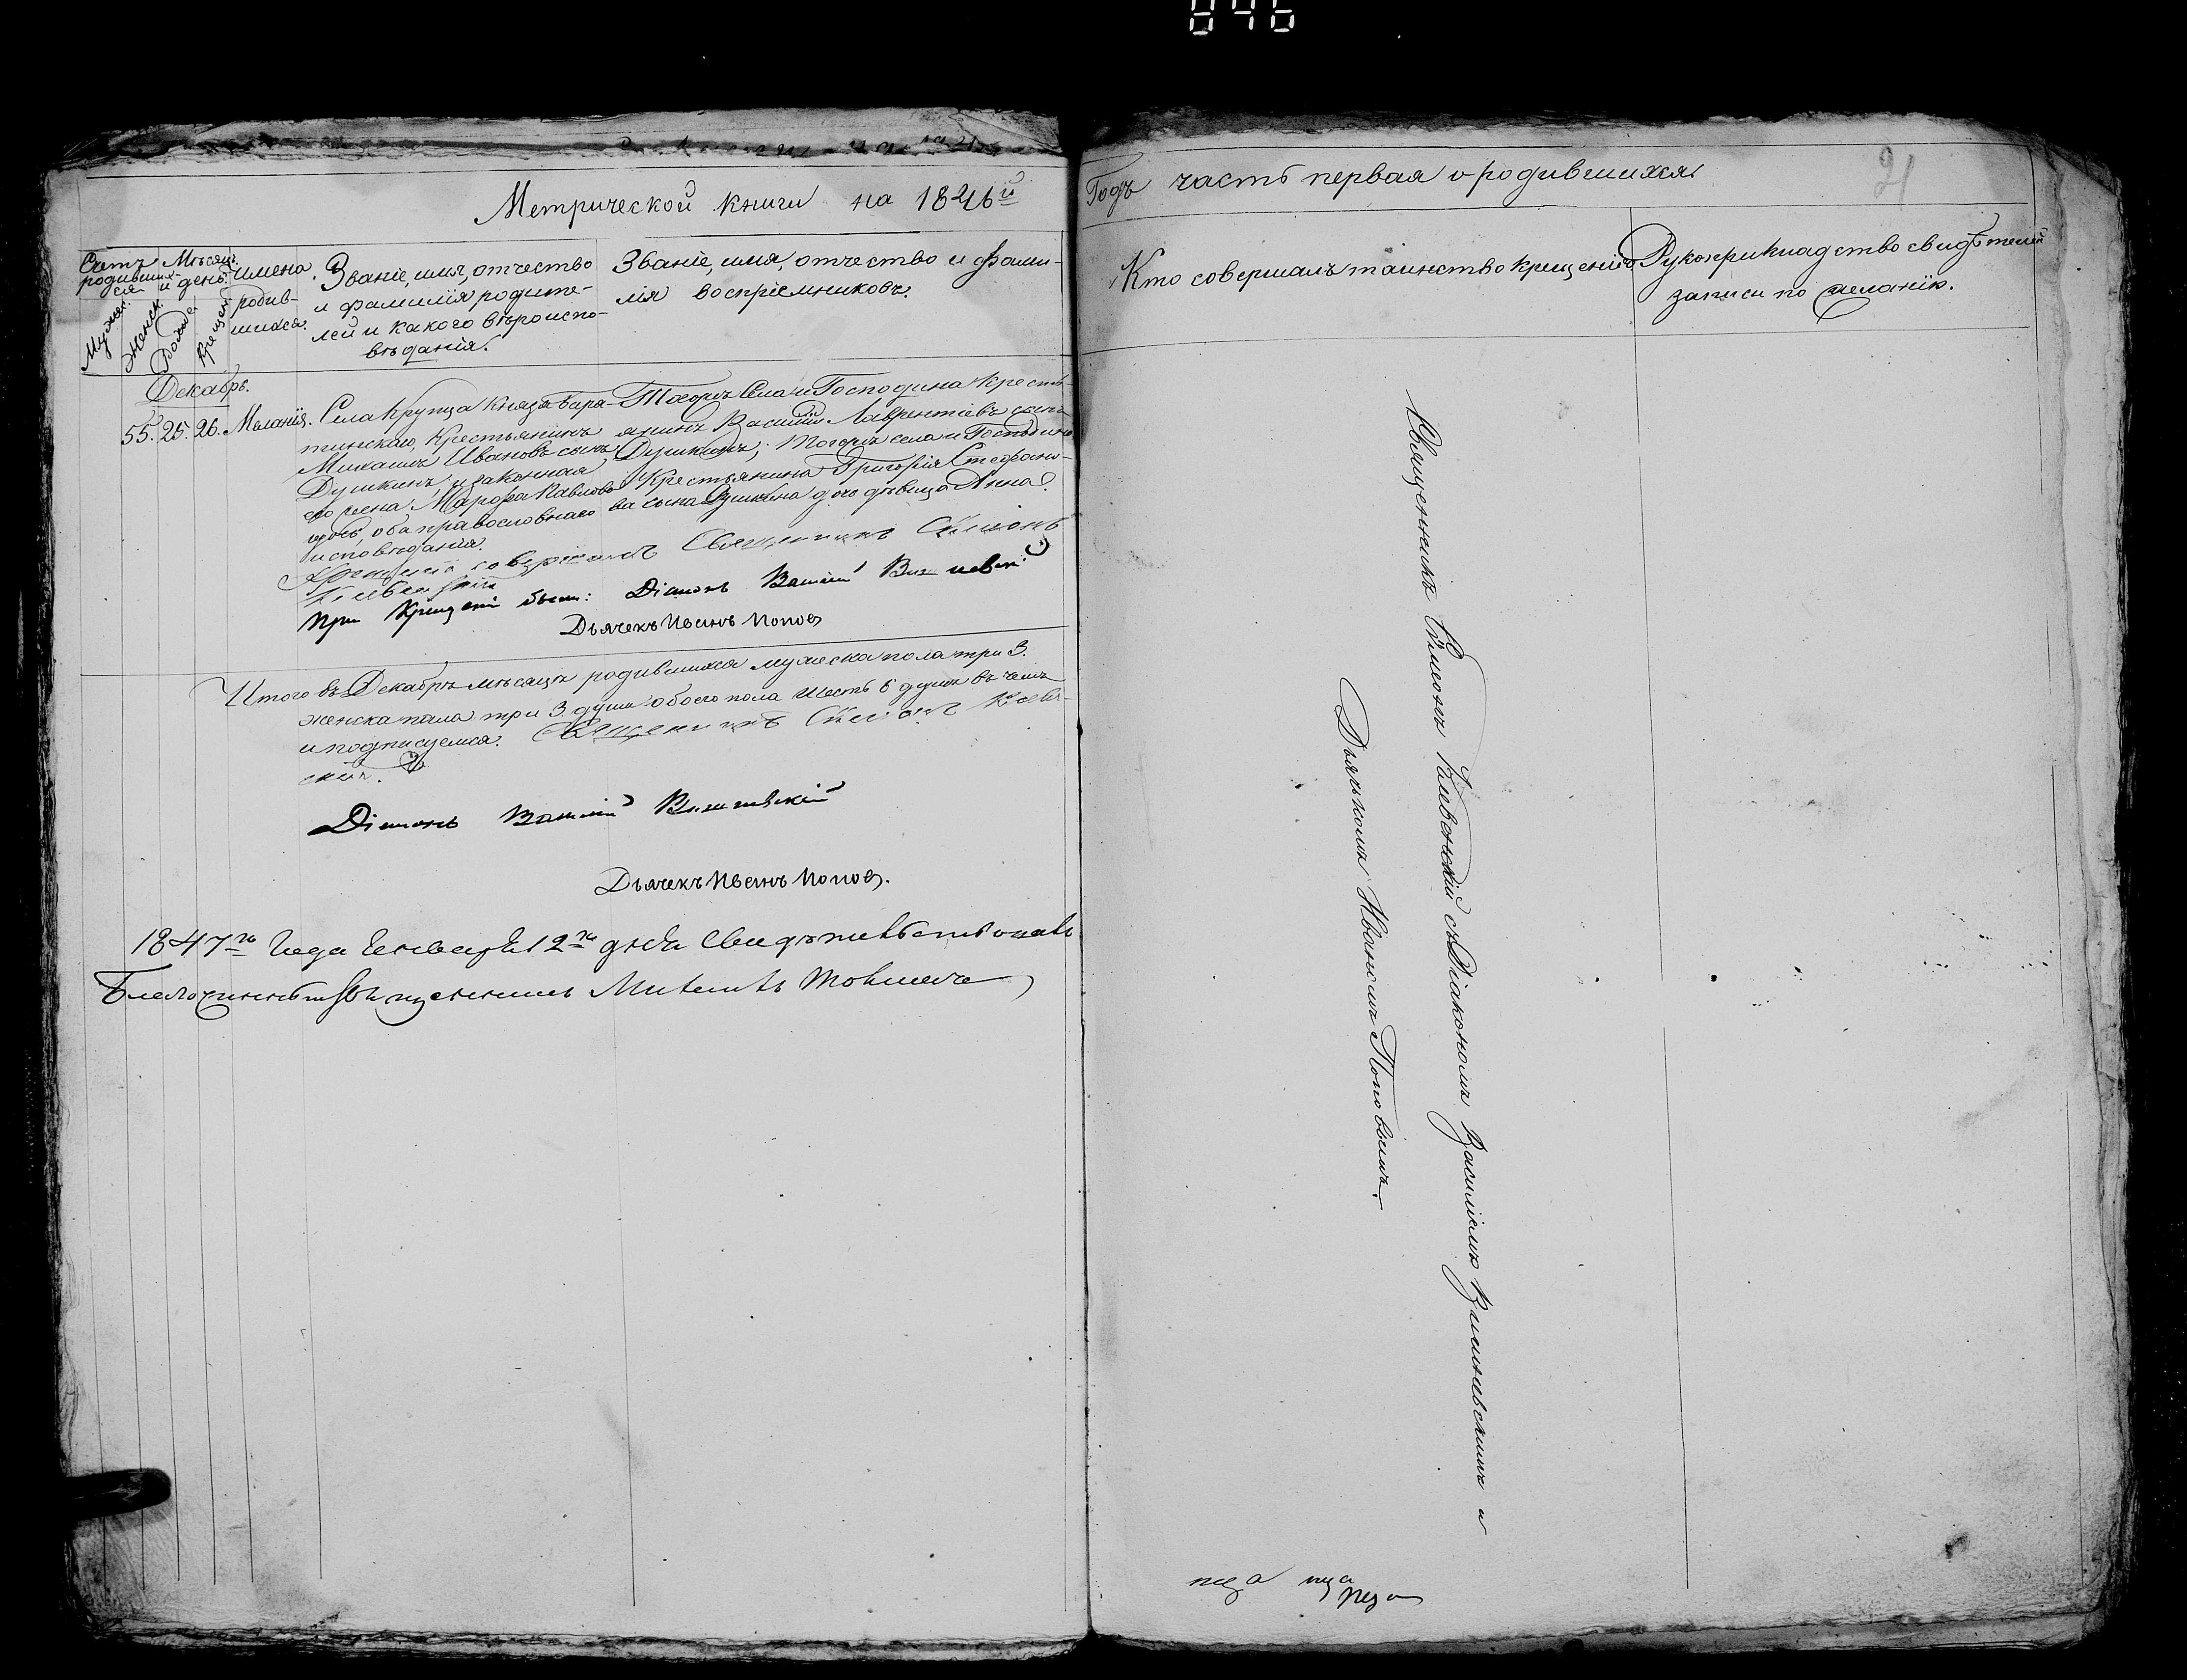 846
Метрической книги на 1846й
Годъ часть первая о родившихся.
21
Счетъ родившихся
Мужск.
Женск.
Мѣсяцъ и день.
Рожд.
Крещен.
Имена
родив-
шихся.
Званіе, имя, отчество
и фамилія родите-
лей и какого вѣроиспо-
вѣданія.
Званіе, имя, отчество и фами-
лія воспріемниковъ.
Кто совершалъ таинство крещенія
Рукоприкладство свидѣтелей
записи по желанію.
Декабрь.
55. 25. 26. Меланія.
Села Крупца Князя Баря-
тинскаго, Крестьянинъ
Михаилъ Ивановъ сынъ
Душкинъ, и законная
его жена Марфа Павлова
дочь, оба православнаго
исповѣданія.
Тогожъ Села и Господина Кресть-
янинъ Василій Лаврентіевъ сынъ
Душкинъ; тогожъ села и Господина
Крестьянина Григорія Стефано-
ва сына Душкина дочь дѣвица Анна.
Крещеніе совершалъ Священникъ Симеонъ
Кіевскій
При Крещеніи былъ: Діаконъ Василій
Дьячекъ Иванъ Попов
Итого въ Декабрѣ мѣсяцѣ родившихся мужеска пола три 3.
женска пола три 3 души обоего пола шесть 6 душъ въ чемъ
и подписуемся. Священникъ Симеонъ Кіев-
скій.
Діаконъ Василій
Дьячекъ Иванъ Попов.
1847го года Генваря 12го дня Свидѣтельствовалъ
Благочинный Священникъ
Священникъ Симеонъ Кіевскій съ Діакономъ Василіемъ и
Дьячкомъ Иваномъ Поповымъ.